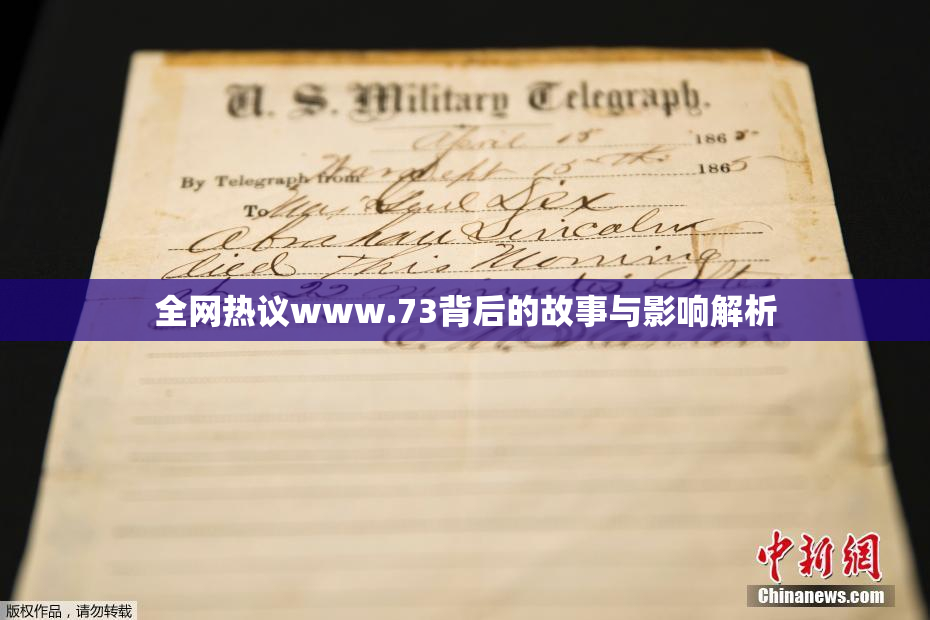 U. S. Military Telegraph.
April 15 1865
By Telegraph from War Dept 15th 1865
To Maj Genl Dix
Abraham Lincoln
died This Morning
at 22 minutes after
全网热议www.73背后的故事与影响解析
E. M. Stanton
中新網
Chinanews.com
版权作品，请勿转载